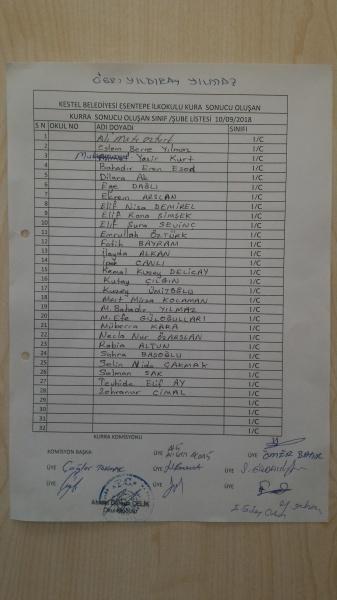 ÖĞRT YILDIRAY YILMAZ
KESTEL BELEDİYESİ ESENTEPE İLKOKULU KURA SONUCU OLUŞAN
KURRA SONUCU OLUŞAN SINIF /ŞUBE LİSTESİ 10/09/2018
S N OKUL NO ADI DOYADI SINIFI
1 Ali Mete Öztürk 1/C
2 Eslem Berne Yılmaz 1/C
3 Muhammed Yasir Kurt 1/C
4 Bahadır Eren Esed 1/C
5 Dilara Ak 1/C
6 Ege DAĞLI 1/C
7 Ekrem ARSLAN 1/C
8 Elif Nisa DEMİREL 1/C
9 Elif Rana ŞİMŞEK 1/C
10 Elif Şura SEVİNÇ 1/C
11 Emrullah ÖZTÜRK 1/C
12 Fatih BAYRAM 1/C
13 İlayda ALKAN 1/C
14 İpek CANLI 1/C
15 Kemal Kuzey DELİCAY 1/C
16 Kutay ÇILGIN 1/C
17 Kuzey ÜMİTOĞLU 1/C
18 Mert Mirza KOCAMAN 1/C
19 M. Bahadır YILMAZ 1/C
20 M. Efe GÜLOĞULLARI 1/C
21 Müberra KARA 1/C
22 Necla Nur ÖZARSLAN 1/C
23 Rabia ALTUN 1/C
24 Sahra BAŞOĞLU 1/C
25 Selin Nida ÇAKMAK 1/C
26 Selman SAK 1/C
27 Tevhide Elif AY 1/C
28 Zehranur CİMAL 1/C
29 1/C
30 1/C
31 1/C
32 1/C
KURRA KOMİSYONU
KOMİSYON BAŞKA ÜYE ÜYE ÖMER
ÜYE Çağlar ÜYE ÜYE
ÜYE ÜYE ÜYE
ÇELİK